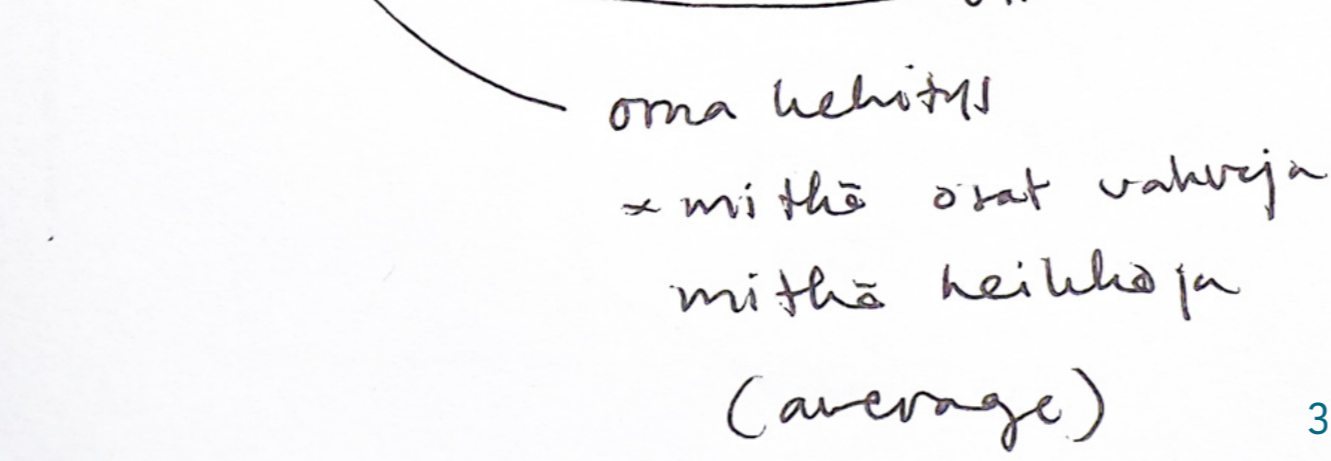 oma kehitys
× mitkä osat vahvoja
mitkä heikkoja
(average)
3